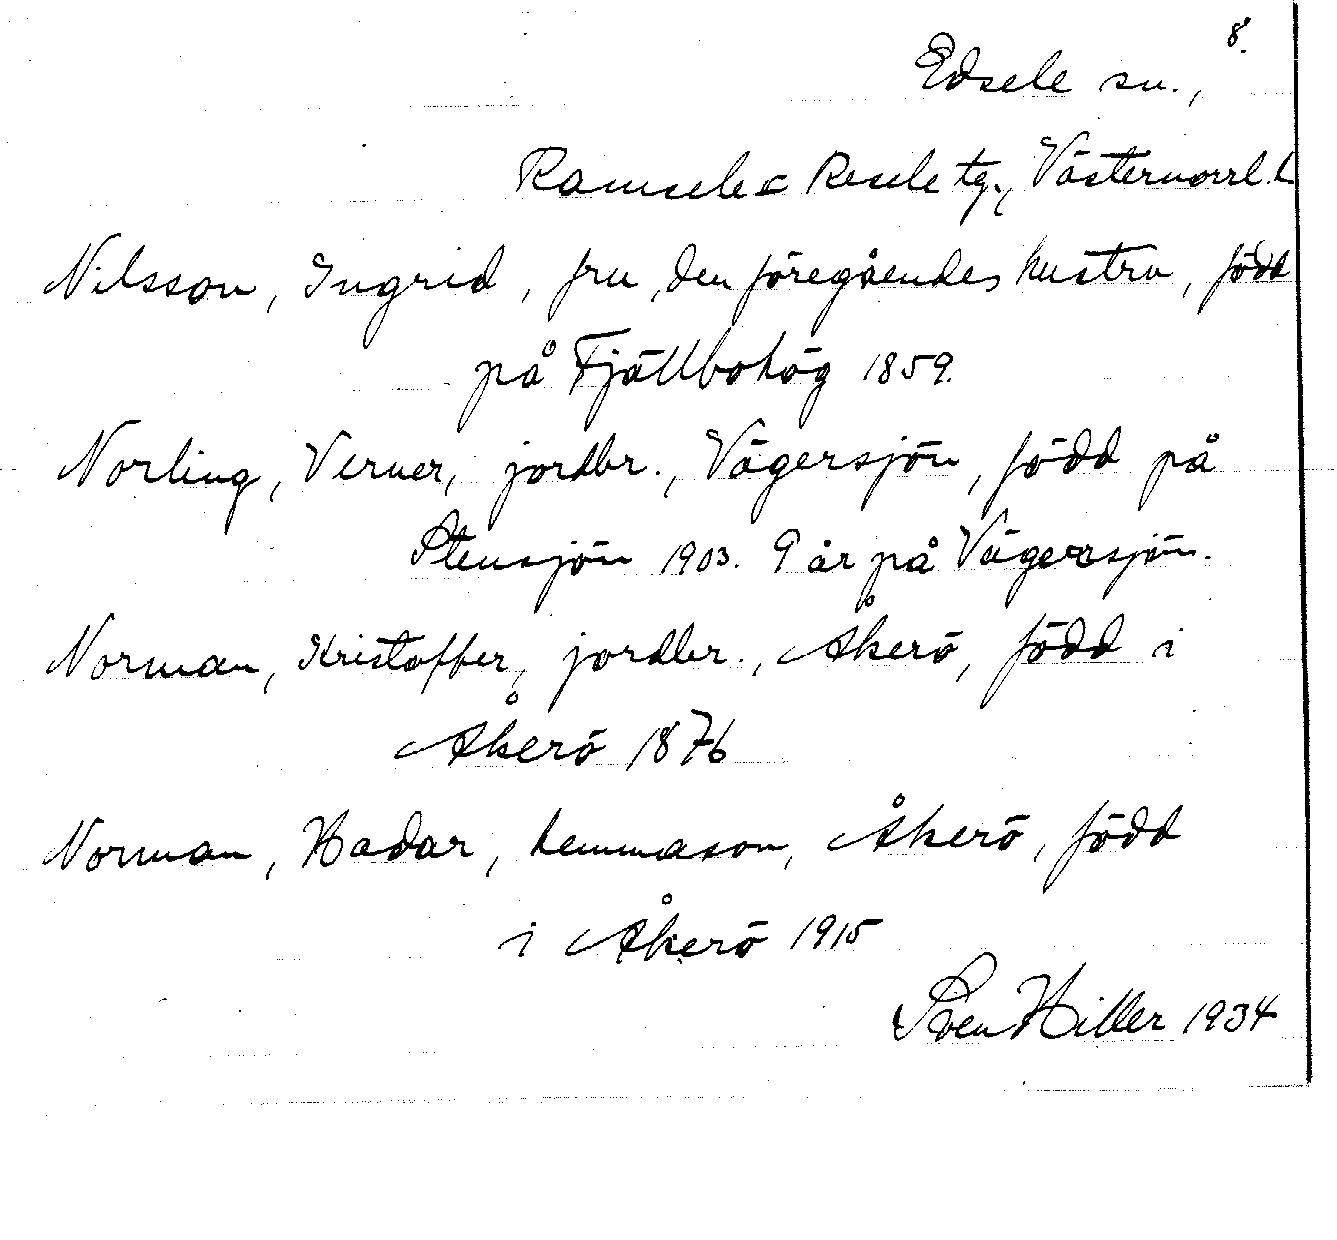 8.
Edsele sn.,
Ramsele o Resele tg., Västernorrl. l
Nilsson, Ingrid, fru, den föregåendes hustru, född
på Fjällbohög 1859.
Norling, Verner, jordbr., Vägersjön, född på
Stensjön 1903. 9 år på Vägersjön.
Norman, Kristoffer, jordbr., Åkerö, född i
Åkerö 1876
Norman, Hadar, hemmason, Åkerö, född
i Åkerö 1915
Sven Hiller 1934